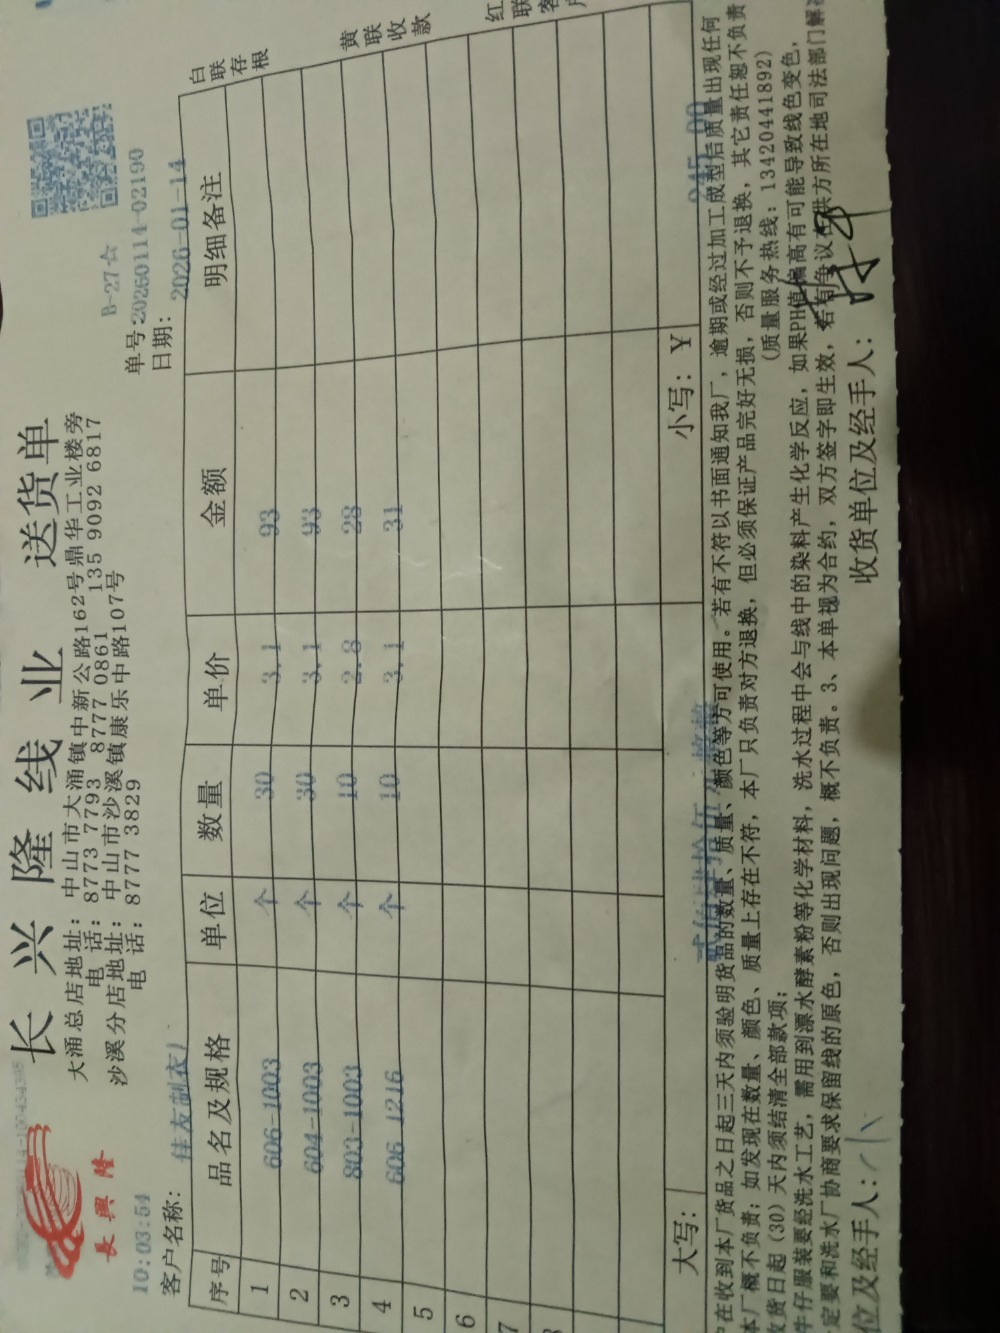 長興隆
长兴隆线业 送货单
B-27☆
大涌总店地址: 中山市大涌镇中新公路162号鼎华工业楼旁
电 话: 8773 7793 8777 0861 135 9092 6817
沙溪分店地址: 中山市沙溪镇康乐中路107号
电 话: 8777 3829
单号:20260114-02190
10:03:54
日期: 2026-01-14
客户名称: 佳友制衣厂
序号 品名及规格 单位 数量 单价 金额 明细备注
1 606-1003 个 30 3.1 93
2 604-1003 个 30 3.1 93
3 803-1003 个 10 2.8 28
4 606 1216 个 10 3.1 31
5
6
7
8
大写: 贰佰肆拾伍 整
小写: ¥ 245.00
白联存根
黄联收款
红联客户
在收到本厂货品之日起三天内须验明货品的数量、质量、颜色等方可使用。若有不符以书面通知我厂, 逾期或经过加工成型后质量出现任何
本厂概不负责; 如发现在数量、颜色、质量上存在不符, 本厂只负责对方退换, 但必须保证产品完好无损, 否则不予退换, 其它责任恕不负责
收货日起 (30) 天内须结清全部款项; (质量服务热线: 13420441892)
牛仔服装要经洗水工艺, 需用到漂水酵素粉等化学材料, 洗水过程中会与线中的染料产生化学反应, 如果PH值偏高有可能导致线色变色,
定要和洗水厂协商要求保留线的原色, 否则出现问题, 概不负责。3、本单视为合约, 双方签字即生效, 若有争议在供方所在地司法部门解
位及经手人:
收货单位及经手人: